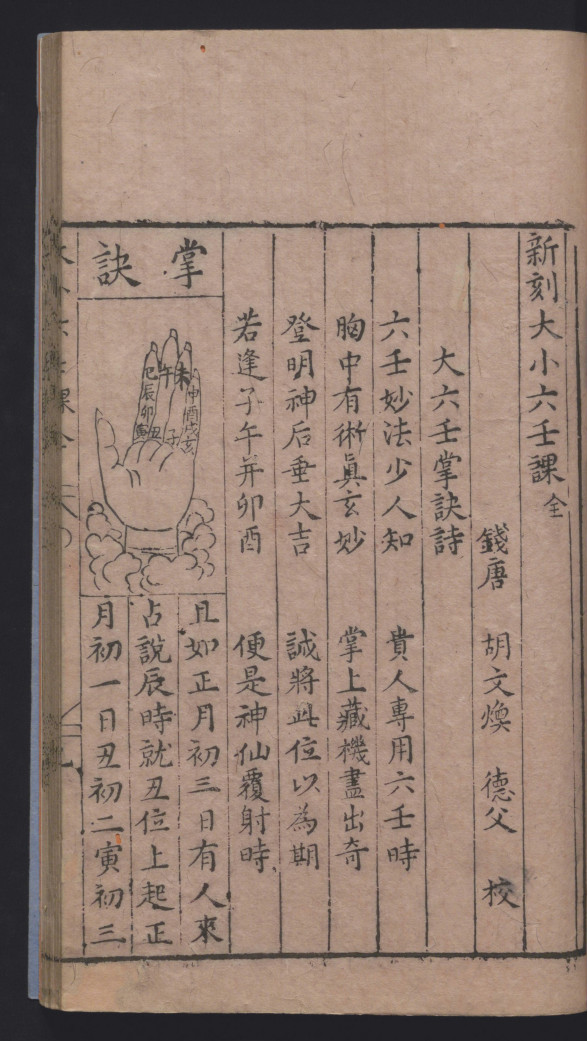 新刻大小六壬課全
錢唐 胡文煥 德父 校
大六壬掌訣詩
六壬妙法少人知 貴人專用六壬時
胸中有術眞玄妙 掌上藏機盡出奇
登明神后垂大吉 誠將此位以為期
若逢子午并卯酉 便是神仙覆射時
掌訣
巳辰卯寅
午丑
未子
申酉戌亥
且如正月初三日有人來
占說辰時就丑位上起正
月初一日丑初二寅初三